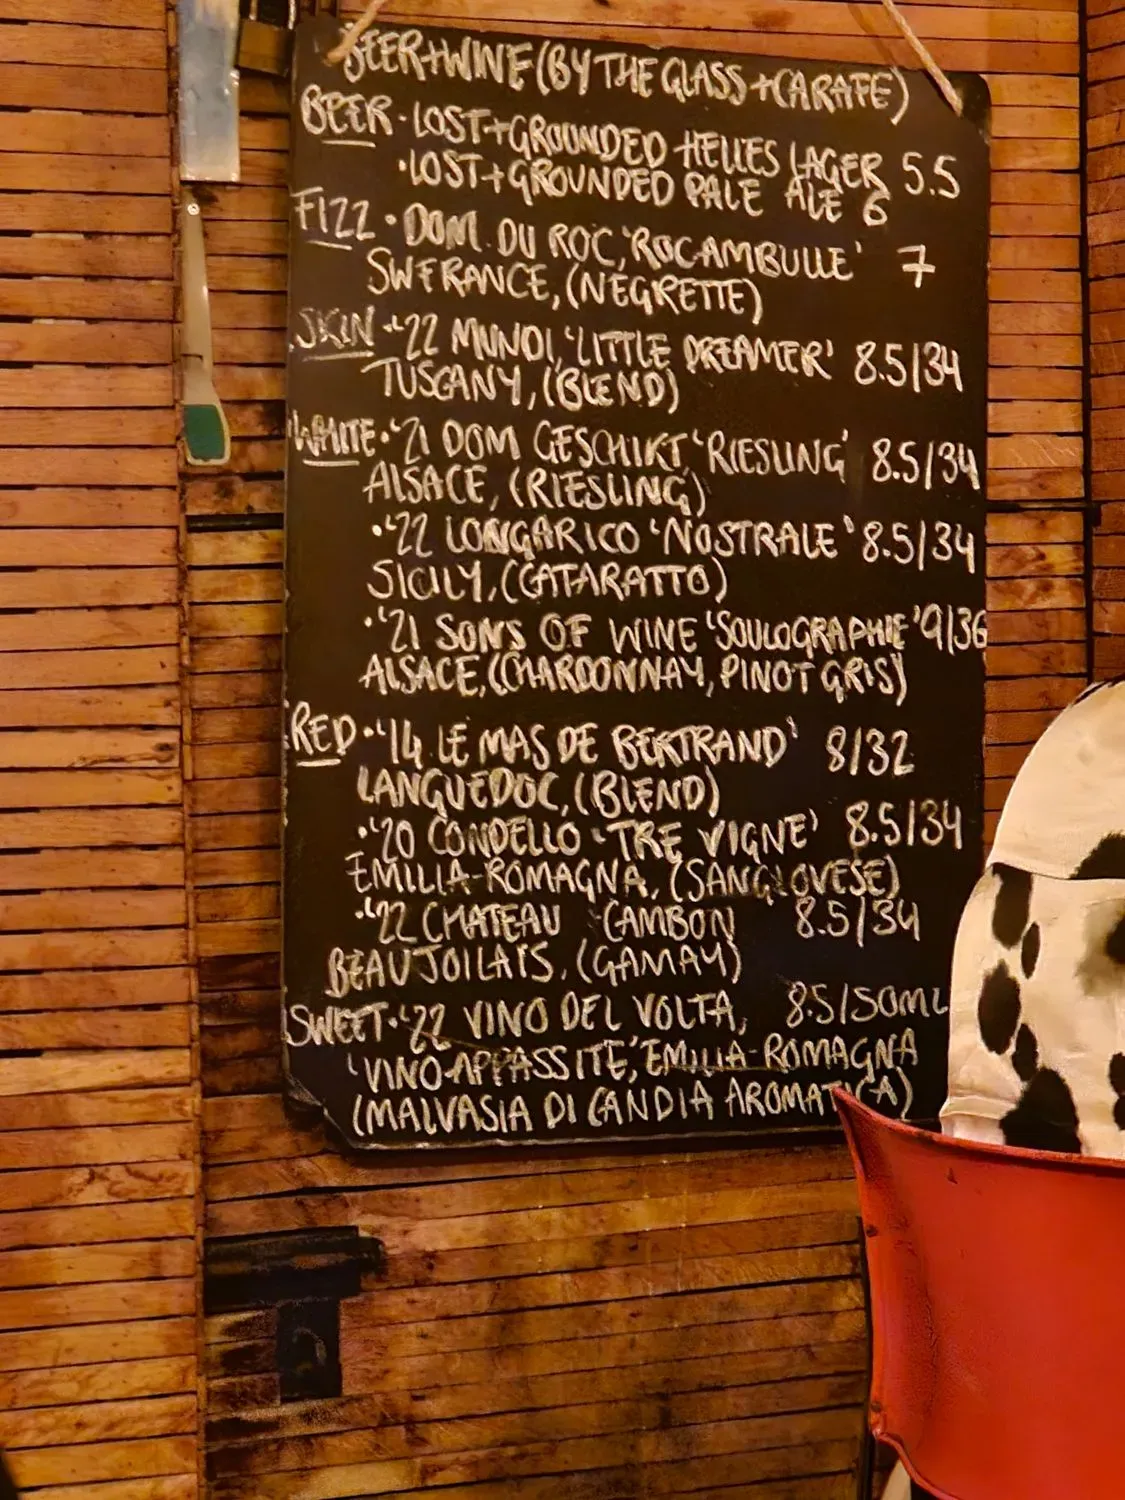 BEER+WINE (BY THE GLASS + CARAFE)
BEER · LOST+GROUNDED HELLES LAGER 5.5
· LOST+GROUNDED PALE ALE 6
FIZZ · DOM. DU ROC, 'ROCAMBULLE' 7
SW FRANCE, (NEGRETTE)
SKIN · '22 MUNDI, 'LITTLE DREAMER' 8.5/34
TUSCANY, (BLEND)
WHITE · '21 DOM GESCHIKT 'RIESLING' 8.5/34
ALSACE, (RIESLING)
· '22 LONGARICO 'NOSTRALE' 8.5/34
SICILY, (CATARATTO)
· '21 SONS OF WINE 'SOULOGRAPHIE' 9/36
ALSACE, (CHARDONNAY, PINOT GRIS)
RED · '14 LE MAS DE BERTRAND' 8/32
LANGUEDOC, (BLEND)
· '20 CONDELLO 'TRE VIGNE' 8.5/34
EMILIA-ROMAGNA, (SANGIOVESE)
· '22 CHATEAU CAMBON 8.5/34
BEAUJOILAIS, (GAMAY)
SWEET · '22 VINO DEL VOLTA, 8.5/50ML
'VINO APPASSITE', EMILIA-ROMAGNA
(MALVASIA DI CANDIA AROMATICA)